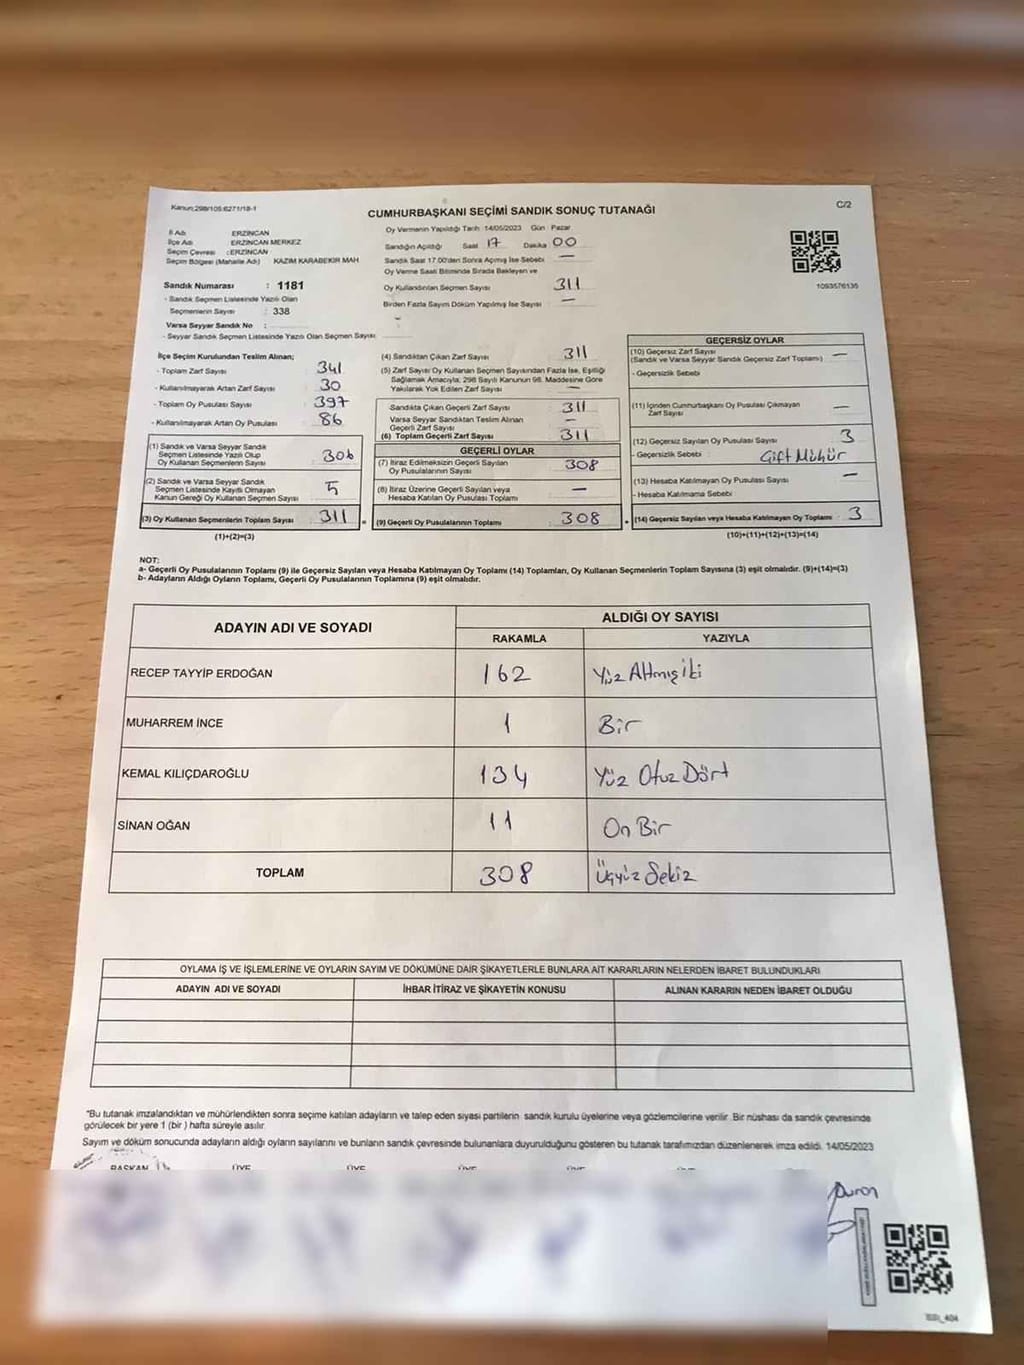 Kanun:298/105:6271/18-1
CUMHURBAŞKANI SEÇİMİ SANDIK SONUÇ TUTANAĞI
C/2
İl Adı : ERZİNCAN
İlçe Adı : ERZİNCAN MERKEZ
Seçim Çevresi : ERZİNCAN
Seçim Bölgesi (Mahalle Adı) KAZIM KARABEKİR MAH.
Sandık Numarası : 1181
- Sandık Seçmen Listesinde Yazılı Olan
Seçmenlerin Sayısı : 338
Varsa Seyyar Sandık No :
- Seyyar Sandık Seçmen Listesinde Yazılı Olan Seçmen Sayısı
Oy Vermenin Yapıldığı Tarih 14/05/2023 Gün Pazar
Sandığın Açıldığı Saat 17 Dakika 00
Sandık Saat 17.00'den Sonra Açımış İse Sebebi —
Oy Verme Saati Bitiminde Sırada Bekleyen ve
Oy Kullandırılan Seçmen Sayısı 311
Birden Fazla Sayım Döküm Yapılmış İse Sayısı —
1093576135
İlçe Seçim Kurulundan Teslim Alınan;
- Toplam Zarf Sayısı 341
- Kullanılmayarak Artan Zarf Sayısı 30
- Toplam Oy Pusulası Sayısı 397
- Kullanılmayarak Artan Oy Pusulası 86
(1) Sandık ve Varsa Seyyar Sandık
Seçmen Listesinde Yazılı Olup
Oy Kullanan Seçmenlerin Sayısı 306
(2) Sandık ve Varsa Seyyar Sandık
Seçmen Listesinde Kayıtlı Olmayan
Kanun Gereği Oy Kullanan Seçmen Sayısı 5
(3) Oy Kullanan Seçmenlerin Toplam Sayısı 311 =
(1)+(2)=(3)
(4) Sandıktan Çıkan Zarf Sayısı 311
(5) Zarf Sayısı Oy Kullanan Seçmen Sayısından Fazla İse, Eşitliği
Sağlamak Amacıyla; 298 Sayılı Kanunun 98. Maddesine Göre
Yakılarak Yok Edilen Zarf Sayısı —
Sandıkta Çıkan Geçerli Zarf Sayısı 311
Varsa Seyyar Sandıktan Teslim Alınan
Geçerli Zarf Sayısı —
(6) Toplam Geçerli Zarf Sayısı 311
GEÇERLİ OYLAR
(7) İtiraz Edilmeksizin Geçerli Sayılan
Oy Pusulalarının Sayısı 308
(8) İtiraz Üzerine Geçerli Sayılan veya
Hesaba Katılan Oy Pusulası Toplamı —
(9) Geçerli Oy Pusulalarının Toplamı 308 +
GEÇERSİZ OYLAR
(10) Geçersiz Zarf Sayısı
(Sandık ve Varsa Seyyar Sandık Geçersiz Zarf Toplamı) —
- Geçersizlik Sebebi
(11) İçinden Cumhurbaşkanı Oy Pusulası Çıkmayan
Zarf Sayısı —
(12) Geçersiz Sayılan Oy Pusulası Sayısı 3
- Geçersizlik Sebebi : Çift Mühür
(13) Hesaba Katılmayan Oy Pusulası Sayısı —
- Hesaba Katılmama Sebebi
(14) Geçersiz Sayılan veya Hesaba Katılmayan Oy Toplamı 3
(10)+(11)+(12)+(13)=(14)
NOT:
a- Geçerli Oy Pusulalarının Toplamı (9) ile Geçersiz Sayılan veya Hesaba Katılmayan Oy Toplamı (14) Toplamları, Oy Kullanan Seçmenlerin Toplam Sayısına (3) eşit olmalıdır. (9)+(14)=(3)
b- Adayların Aldığı Oyların Toplamı, Geçerli Oy Pusulalarının Toplamına (9) eşit olmalıdır.
ADAYIN ADI VE SOYADI ALDIĞI OY SAYISI
RAKAMLA YAZIYLA
RECEP TAYYİP ERDOĞAN 162 Yüz Altmış iki
MUHARREM İNCE 1 Bir
KEMAL KILIÇDAROĞLU 134 Yüz Otuz Dört
SİNAN OĞAN 11 On Bir
TOPLAM 308 Üçyüz Sekiz
OYLAMA İŞ VE İŞLEMLERİNE VE OYLARIN SAYIM VE DÖKÜMÜNE DAİR ŞİKAYETLERLE BUNLARA AİT KARARLARIN NELERDEN İBARET BULUNDUKLARI
ADAYIN ADI VE SOYADI İHBAR İTİRAZ VE ŞİKAYETİN KONUSU ALINAN KARARIN NEDEN İBARET OLDUĞU
"Bu tutanak imzalandıktan ve mühürlendikten sonra seçime katılan adayların ve talep eden siyasi partilerin sandık kurulu üyelerine veya gözlemcilerine verilir. Bir nüshası da sandık çevresinde
görülecek bir yere 1 (bir ) hafta süreyle asılır.
Sayım ve döküm sonucunda adayların aldığı oyların sayılarını ve bunların sandık çevresinde bulunanlara duyurulduğunu gösteren bu tutanak tarafımızdan düzenlenerek imza edildi. 14/05/2023
BAŞKAN ÜYE ÜYE ÜYE ÜYE ÜYE